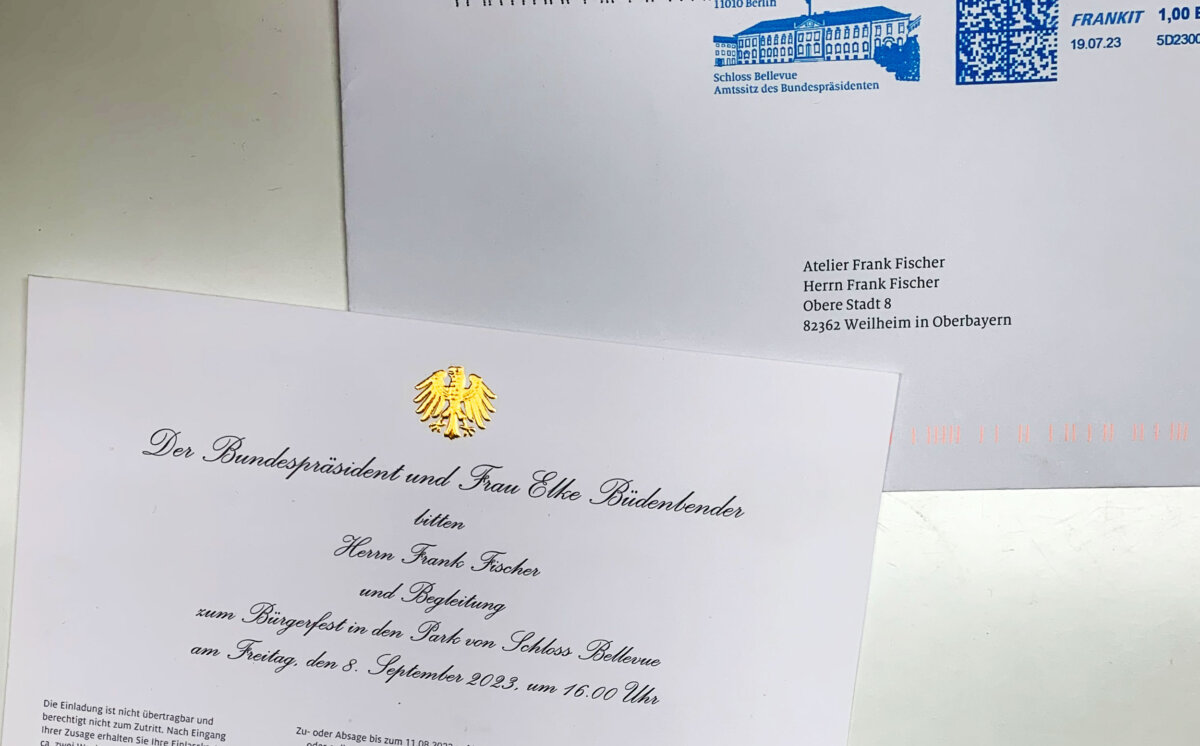 11010 Berlin
Schloss Bellevue
Amtssitz des Bundespräsidenten
FRANKIT 1,00
19.07.23 5D2300
Atelier Frank Fischer
Herrn Frank Fischer
Obere Stadt 8
82362 Weilheim in Oberbayern
Der Bundespräsident und Frau Elke Büdenbender
bitten
Herrn Frank Fischer
und Begleitung
zum Bürgerfest in den Park von Schloss Bellevue
am Freitag, den 8. September 2023, um 16.00 Uhr
Die Einladung ist nicht übertragbar und
berechtigt nicht zum Zutritt. Nach Eingang
Ihrer Zusage erhalten Sie Ihre
ca. zwei
Zu- oder Absage bis zum 11.08.2023